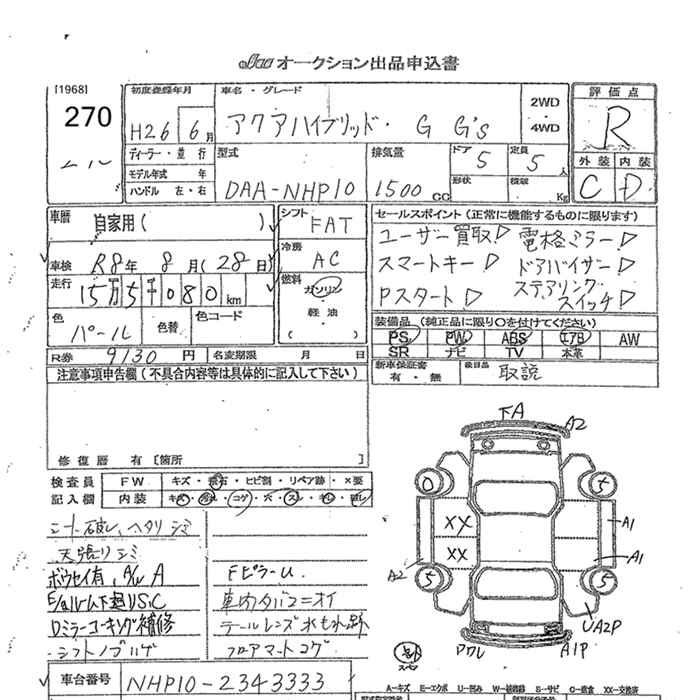 オークション出品申込書
[1968]
270
初度登録年月
H26 6月
車名・グレード
アクアハイブリッド・ G G's
2WD
・
4WD
評価点
R
外装 内装
C D
ディーラー・並行
モデル年式 年
ハンドル 左・右
型式
DAA-NHP10
排気量
1500 CC
ドア 5
定員 5人
形状
積載 Kg
車歴
自家用( )
シフト FAT
冷房 AC
燃料
ガソリン
・
軽油
( )
車検 R8年 8月(28日)
走行 15万5千080km
色 パール
色替
色コード
R券 9130円
名変期限 月 日
セールスポイント(正常に機能するものに限ります)
ユーザー買取! 電格ミラー!
スマートキー! ドアバイザー!
Pスタート! ステアリングスイッチ!
装備品(純正品に限り○を付けてください)
PS PW ABS エアB AW
SR ナビ TV 本革
新車保証書 有・無
後日品 取説
注意事項申告欄(不具合内容等は具体的に記入して下さい)
修復歴 有[箇所 ]
検査員 記入欄
FW キズ・飛石・ヒビ割・リペア跡・X要
内装 キズ・汚れ・コゲ・穴・スレ・キレ
シート破レ、ヘタリシミ
天張りシミ
ボウセイ有
Dミラーコーキング補修
シフトノブハゲ
FピラーU
車内タバコニオイ
テールレンズ水もれ跡
フロアマットコゲ
車台番号 NHP10-2343333
下A
A2
5
5
5
XX
XX
A1
A1
A2
UA2P
A1P
A-キズ E-エクボ U-凹み W-補修跡 S-サビ C-腐食 XX-交換済